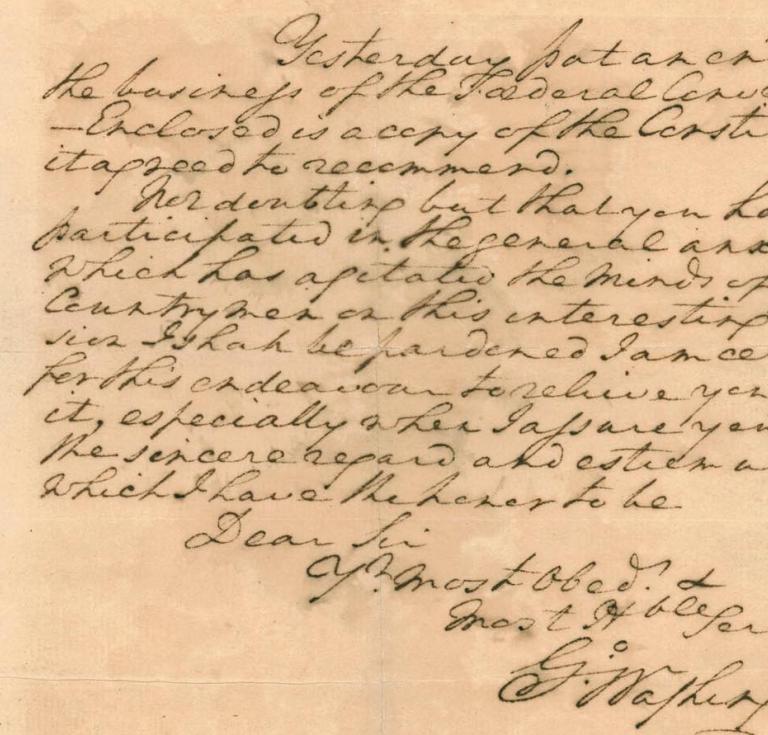 Yesterday put an en
the business of the Fœderal Conv
—Enclosed is a copy of the Consti
it agreed to recommend.
Not doubting but that you ha
participated in the general anx
which has agitated the minds of
Countrymen on this interesting
sion I shall be pardoned I am ce
for this endeavour to relieve you
it, especially when I assure you
the sincere regard and esteem w
which I have the honor to be
Dear Sir
Yr. most Obedt. &
Most Hble Ser
Go. Washing